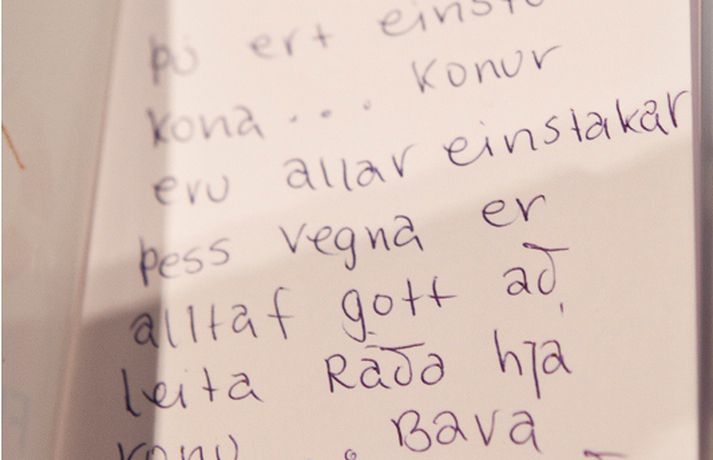 þú ert
kona... konur
eru allar einstakar
þess vegna er
alltaf gott að
leita Ráða hjá
konu . Bara